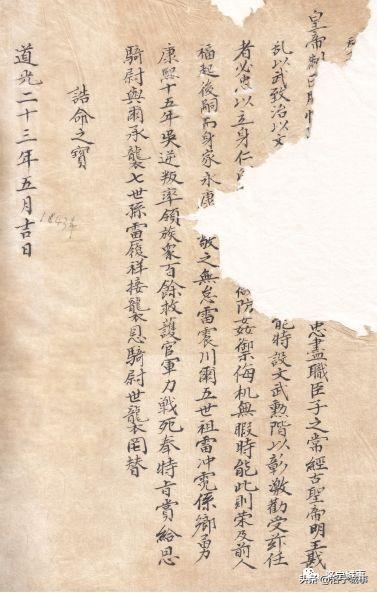 皇帝制曰 忠盡職臣子之常經古聖帝明王戡
乱以武致治以文 能特設文武勳階以彰激勸受茲任
者必忠以立身仁 防姦禦侮机無暇時能此則荣及前人
福起後嗣而身家永康 敬之無怠雷震川爾五世祖雷冲霄係鄉勇
康熙十五年吳逆叛率領族衆百餘救護官軍力戰死奉特旨賞給恩
騎尉與爾承襲七世孫雷履祥接襲恩騎尉世襲罔替
誥命之寶
道光二十三年五月吉日
1843年
洛宁城事
头条 @洛宁城事